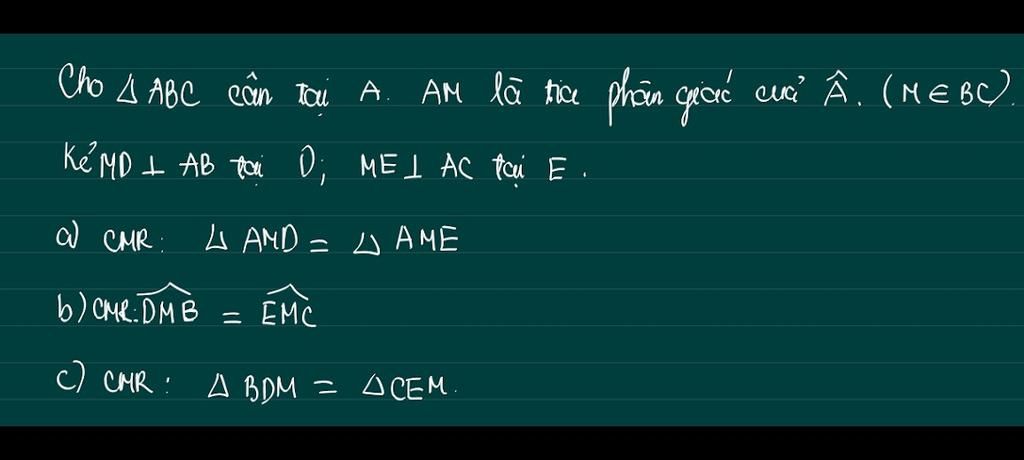 Cho △ ABC cân tại A. AM là tia phân giác của Â. (M ∈ BC).
Kẻ MD ⊥ AB tại D; ME ⊥ AC tại E.
a) CMR: △ AMD = △ AME
b) CMR: \widehat{DMB} = \widehat{EMC}
c) CMR: △ BDM = △ CEM.